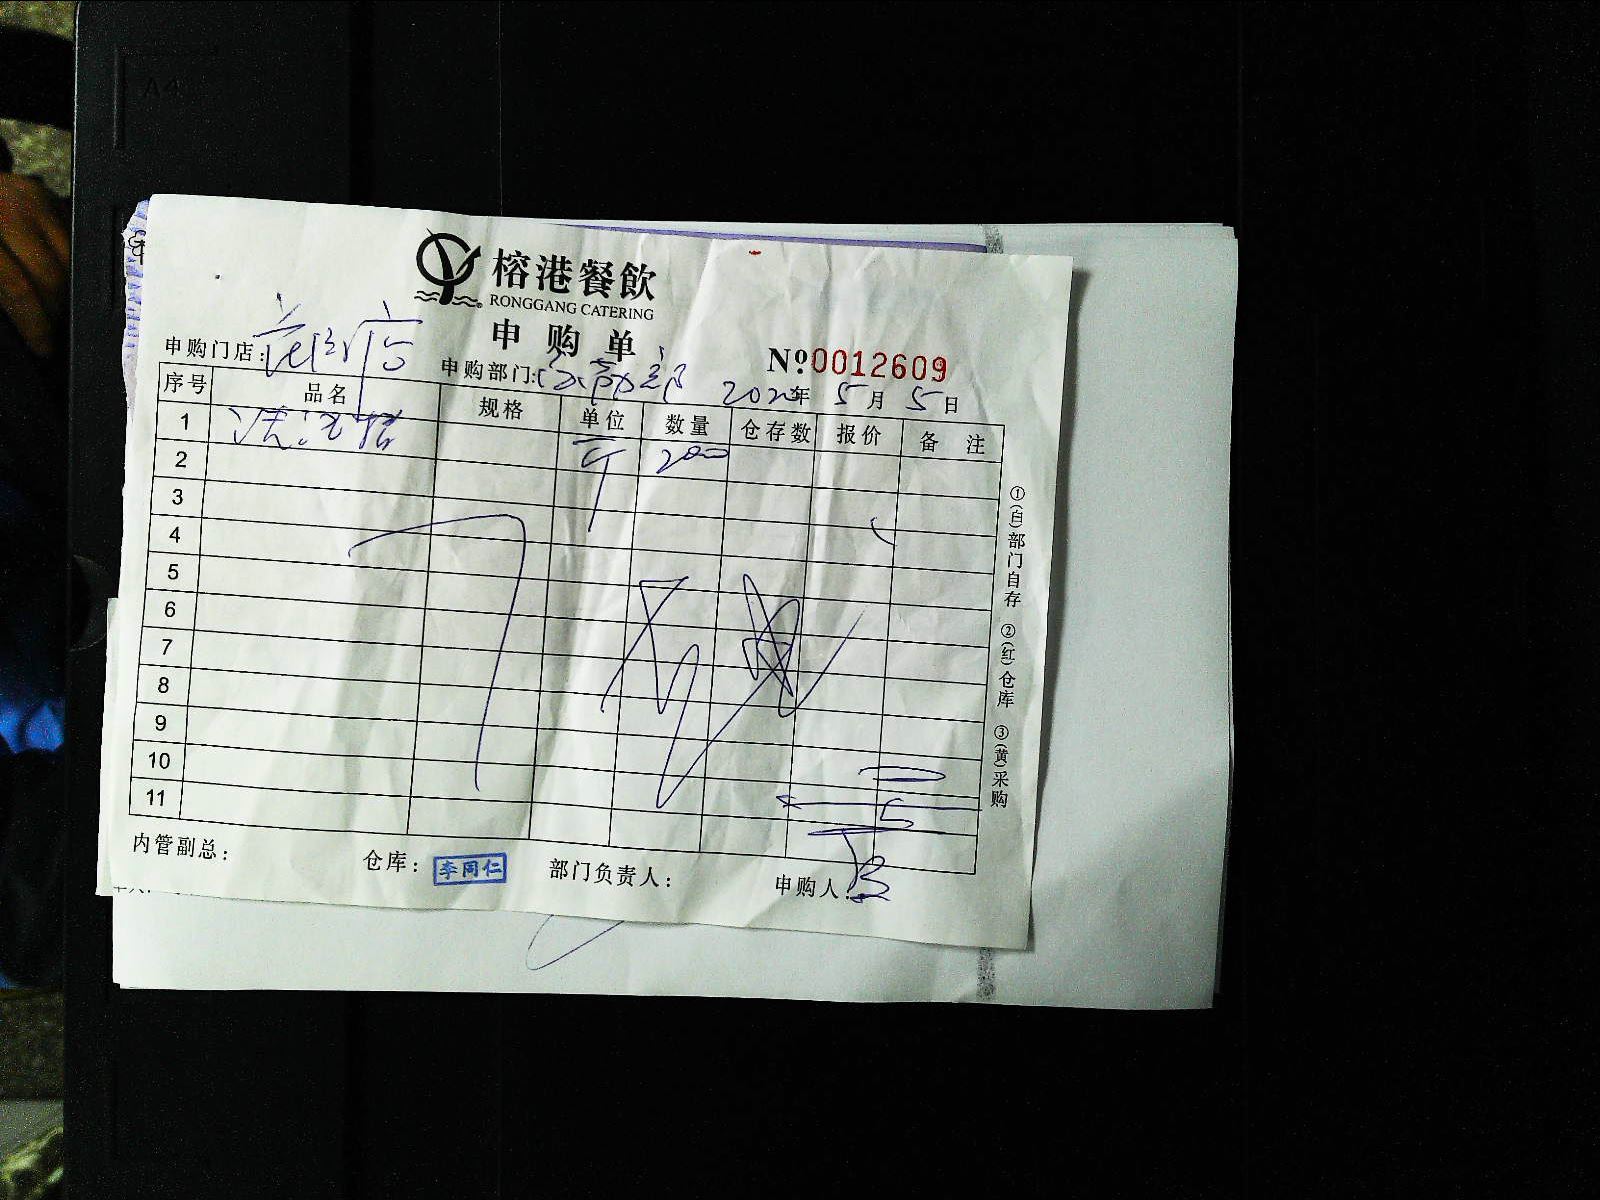 A4
榕港餐飲
RONGGANG CATERING
申购单
申购门店: 店
申购部门: 部
№0012609
2020年5月5日
序号 品名 规格 单位 数量 仓存数 报价 备 注
1 洗洁精
2 200
3
4
5
6
7
8
9
10
11
①(白)部门自存 ②(红)仓库 ③(黄)采购
内管副总: 仓库: 李同仁 部门负责人: 申购人: